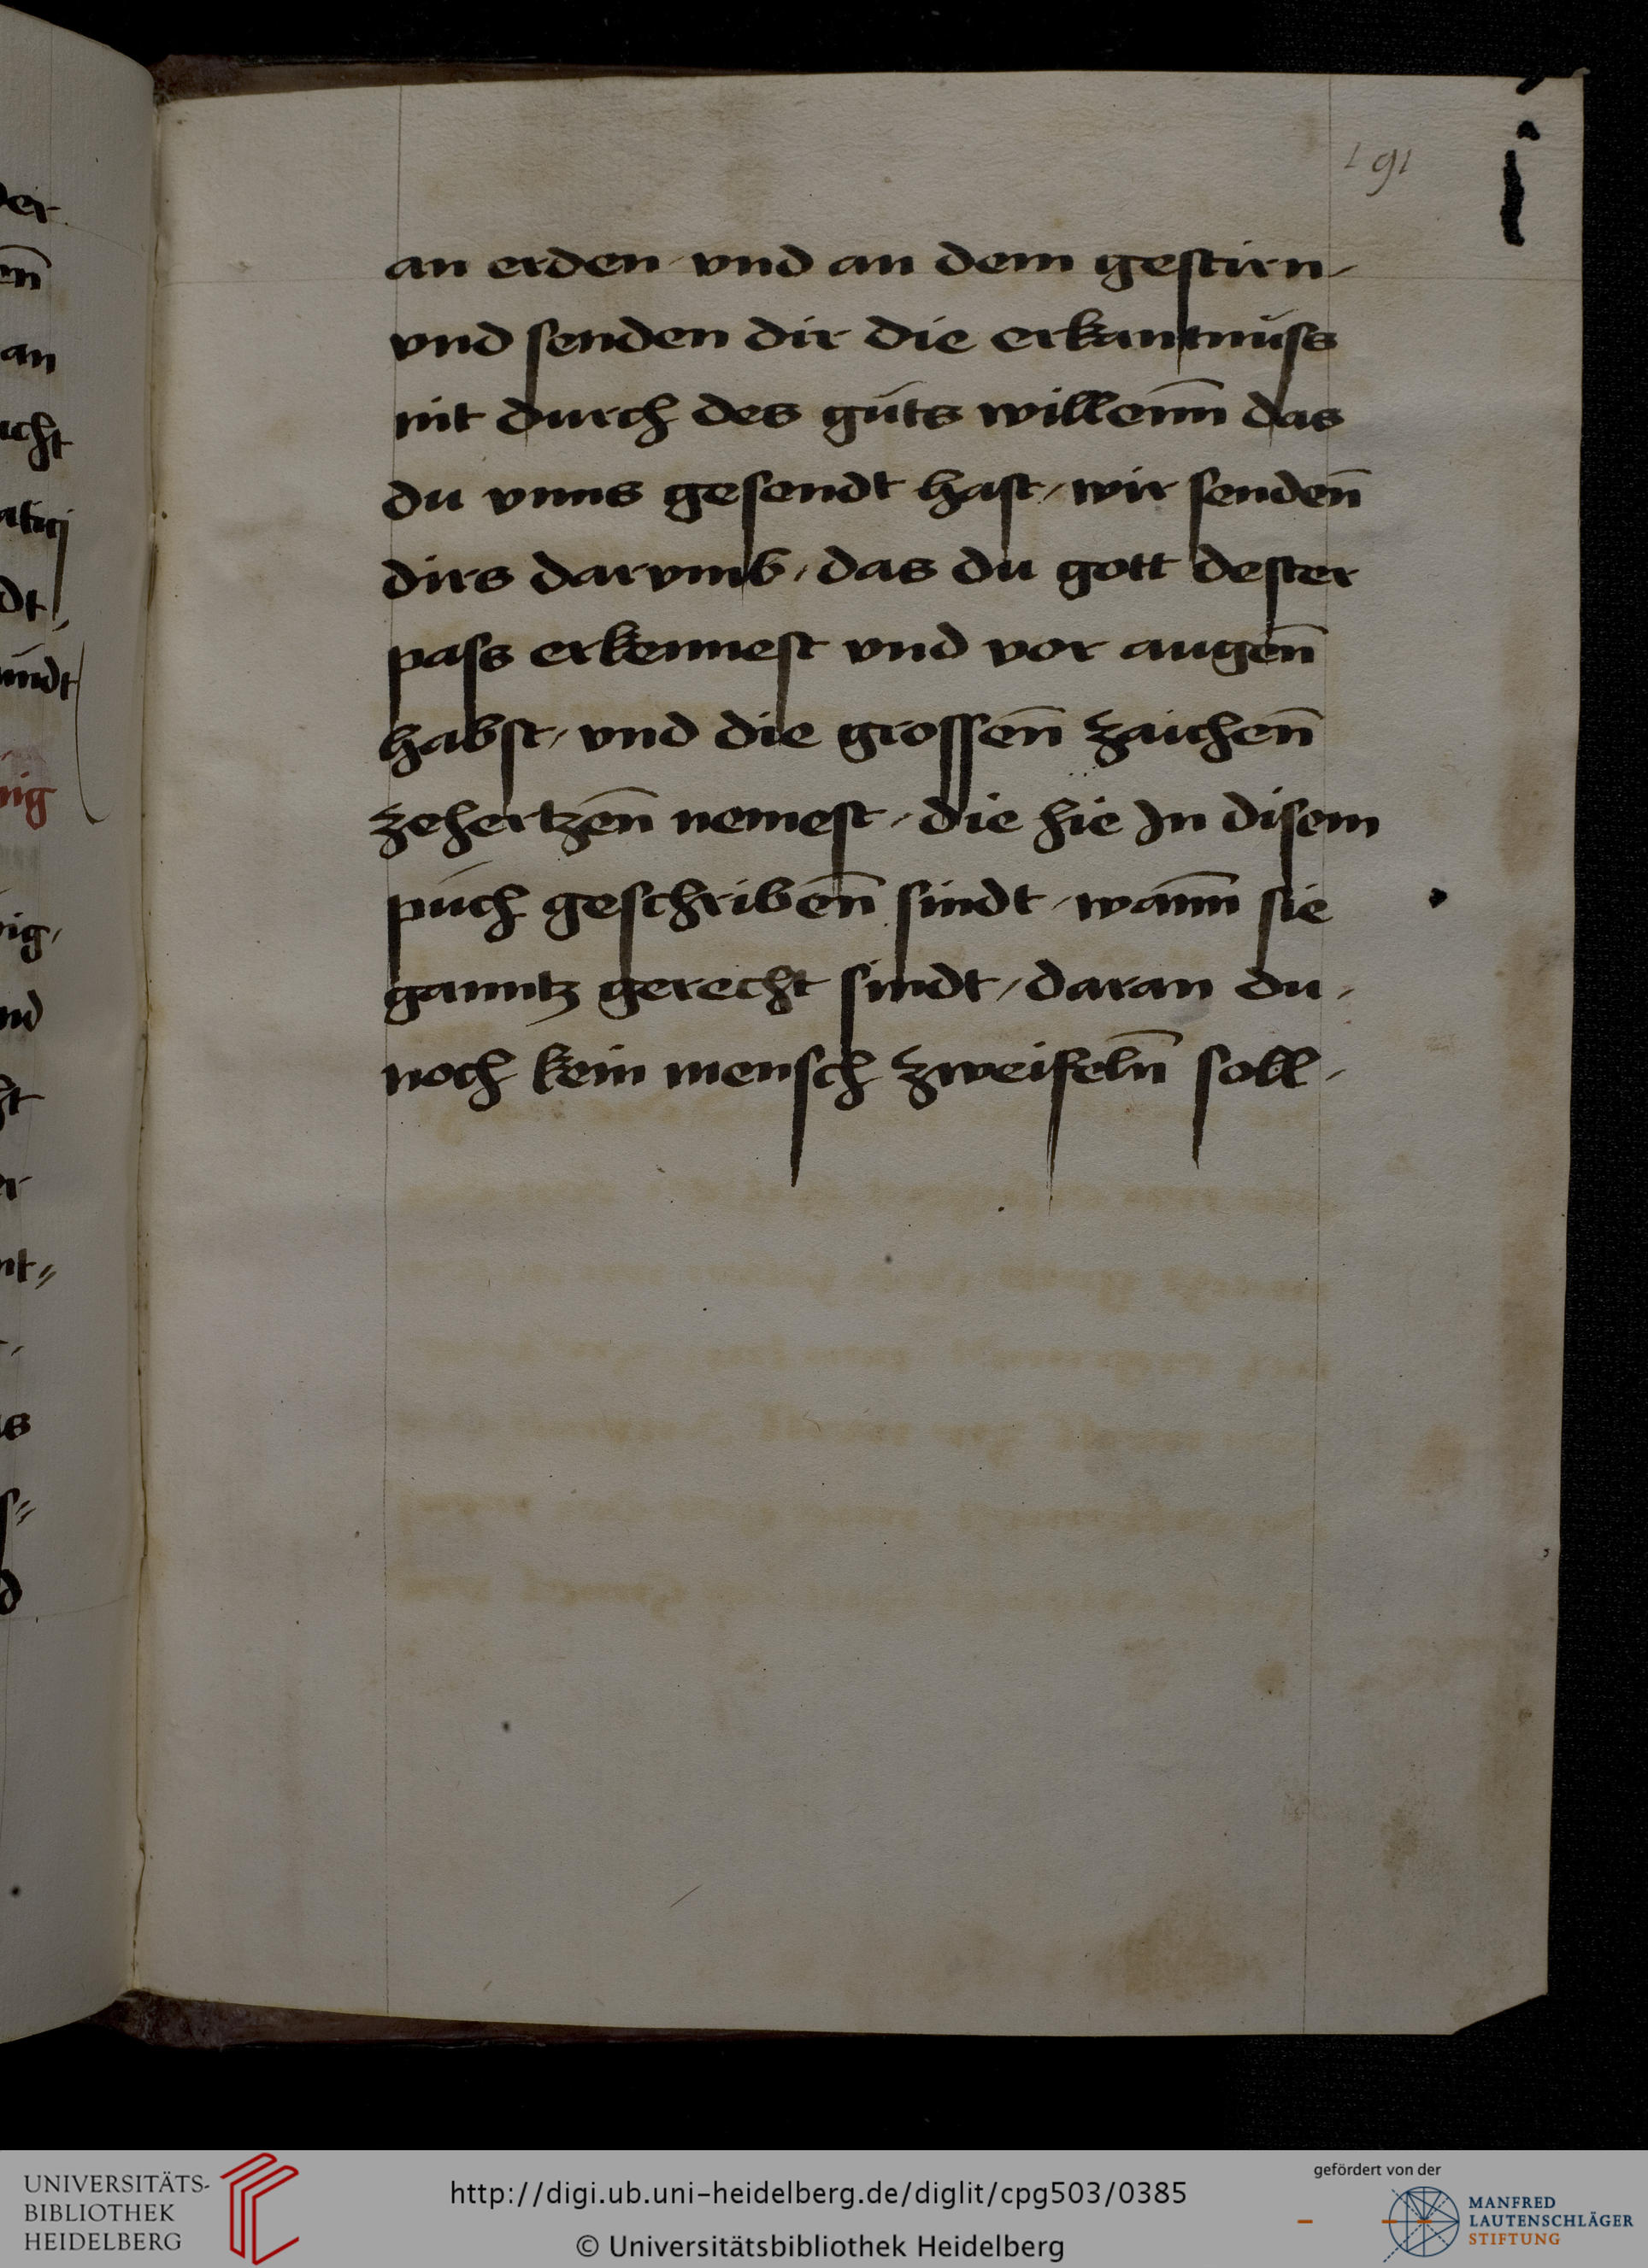 191
an erden vnd an dem gestirn /
vnd senden dir die erkantnúss
nit durch des gúts willenn̄ das
du vnns gesendt hast / wir senden̄
dirs darvmb / das du gott dester
pass erkennest vnd vor augen̄
habst / vnd die grossen̄ zaichen̄
zehertzen̄ nemest / die hie In disem
púch geschriben̄ sindt / wann̄ sie
ganntz gerecht sindt / daran du /
noch kein mensch zweifeln̄ soll /
UNIVERSITÄTS-
BIBLIOTHEK
HEIDELBERG
http://digi.ub.uni-heidelberg.de/diglit/cpg503/0385
© Universitätsbibliothek Heidelberg
gefördert von der
MANFRED
LAUTENSCHLÄGER
STIFTUNG